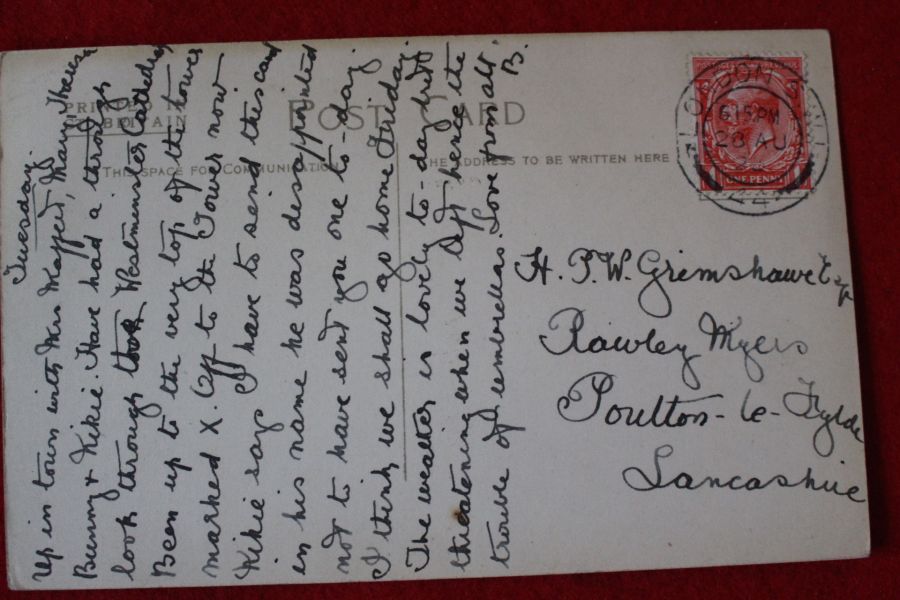 PRINTED IN
Gt BRITAIN
POST CARD
THIS SPACE FOR COMMUNICATION
THE ADDRESS TO BE WRITTEN HERE
LONDON
6.15 PM
28 AU
22
POSTAGE REVENUE
ONE PENNY
Tuesday.
Up in town with Mrs Mapped, Mary,
Bunny & Kikie. Have had a through
look through Westminster Cathedral
Been up to the very top of the tower
marked X. Off to the Tower now
Kikie says I have to send this card
in his name he was disappointed
not to have sent you one to-day
I think we shall go home Friday.
The weather is lovely to-day tho'
threatening when we left hence the
trouble of umbrellas. Love from all
B.
H. P. W. Grimshawe Esq
Rawley Myers
Poulton-le-Fylde
Lancashire